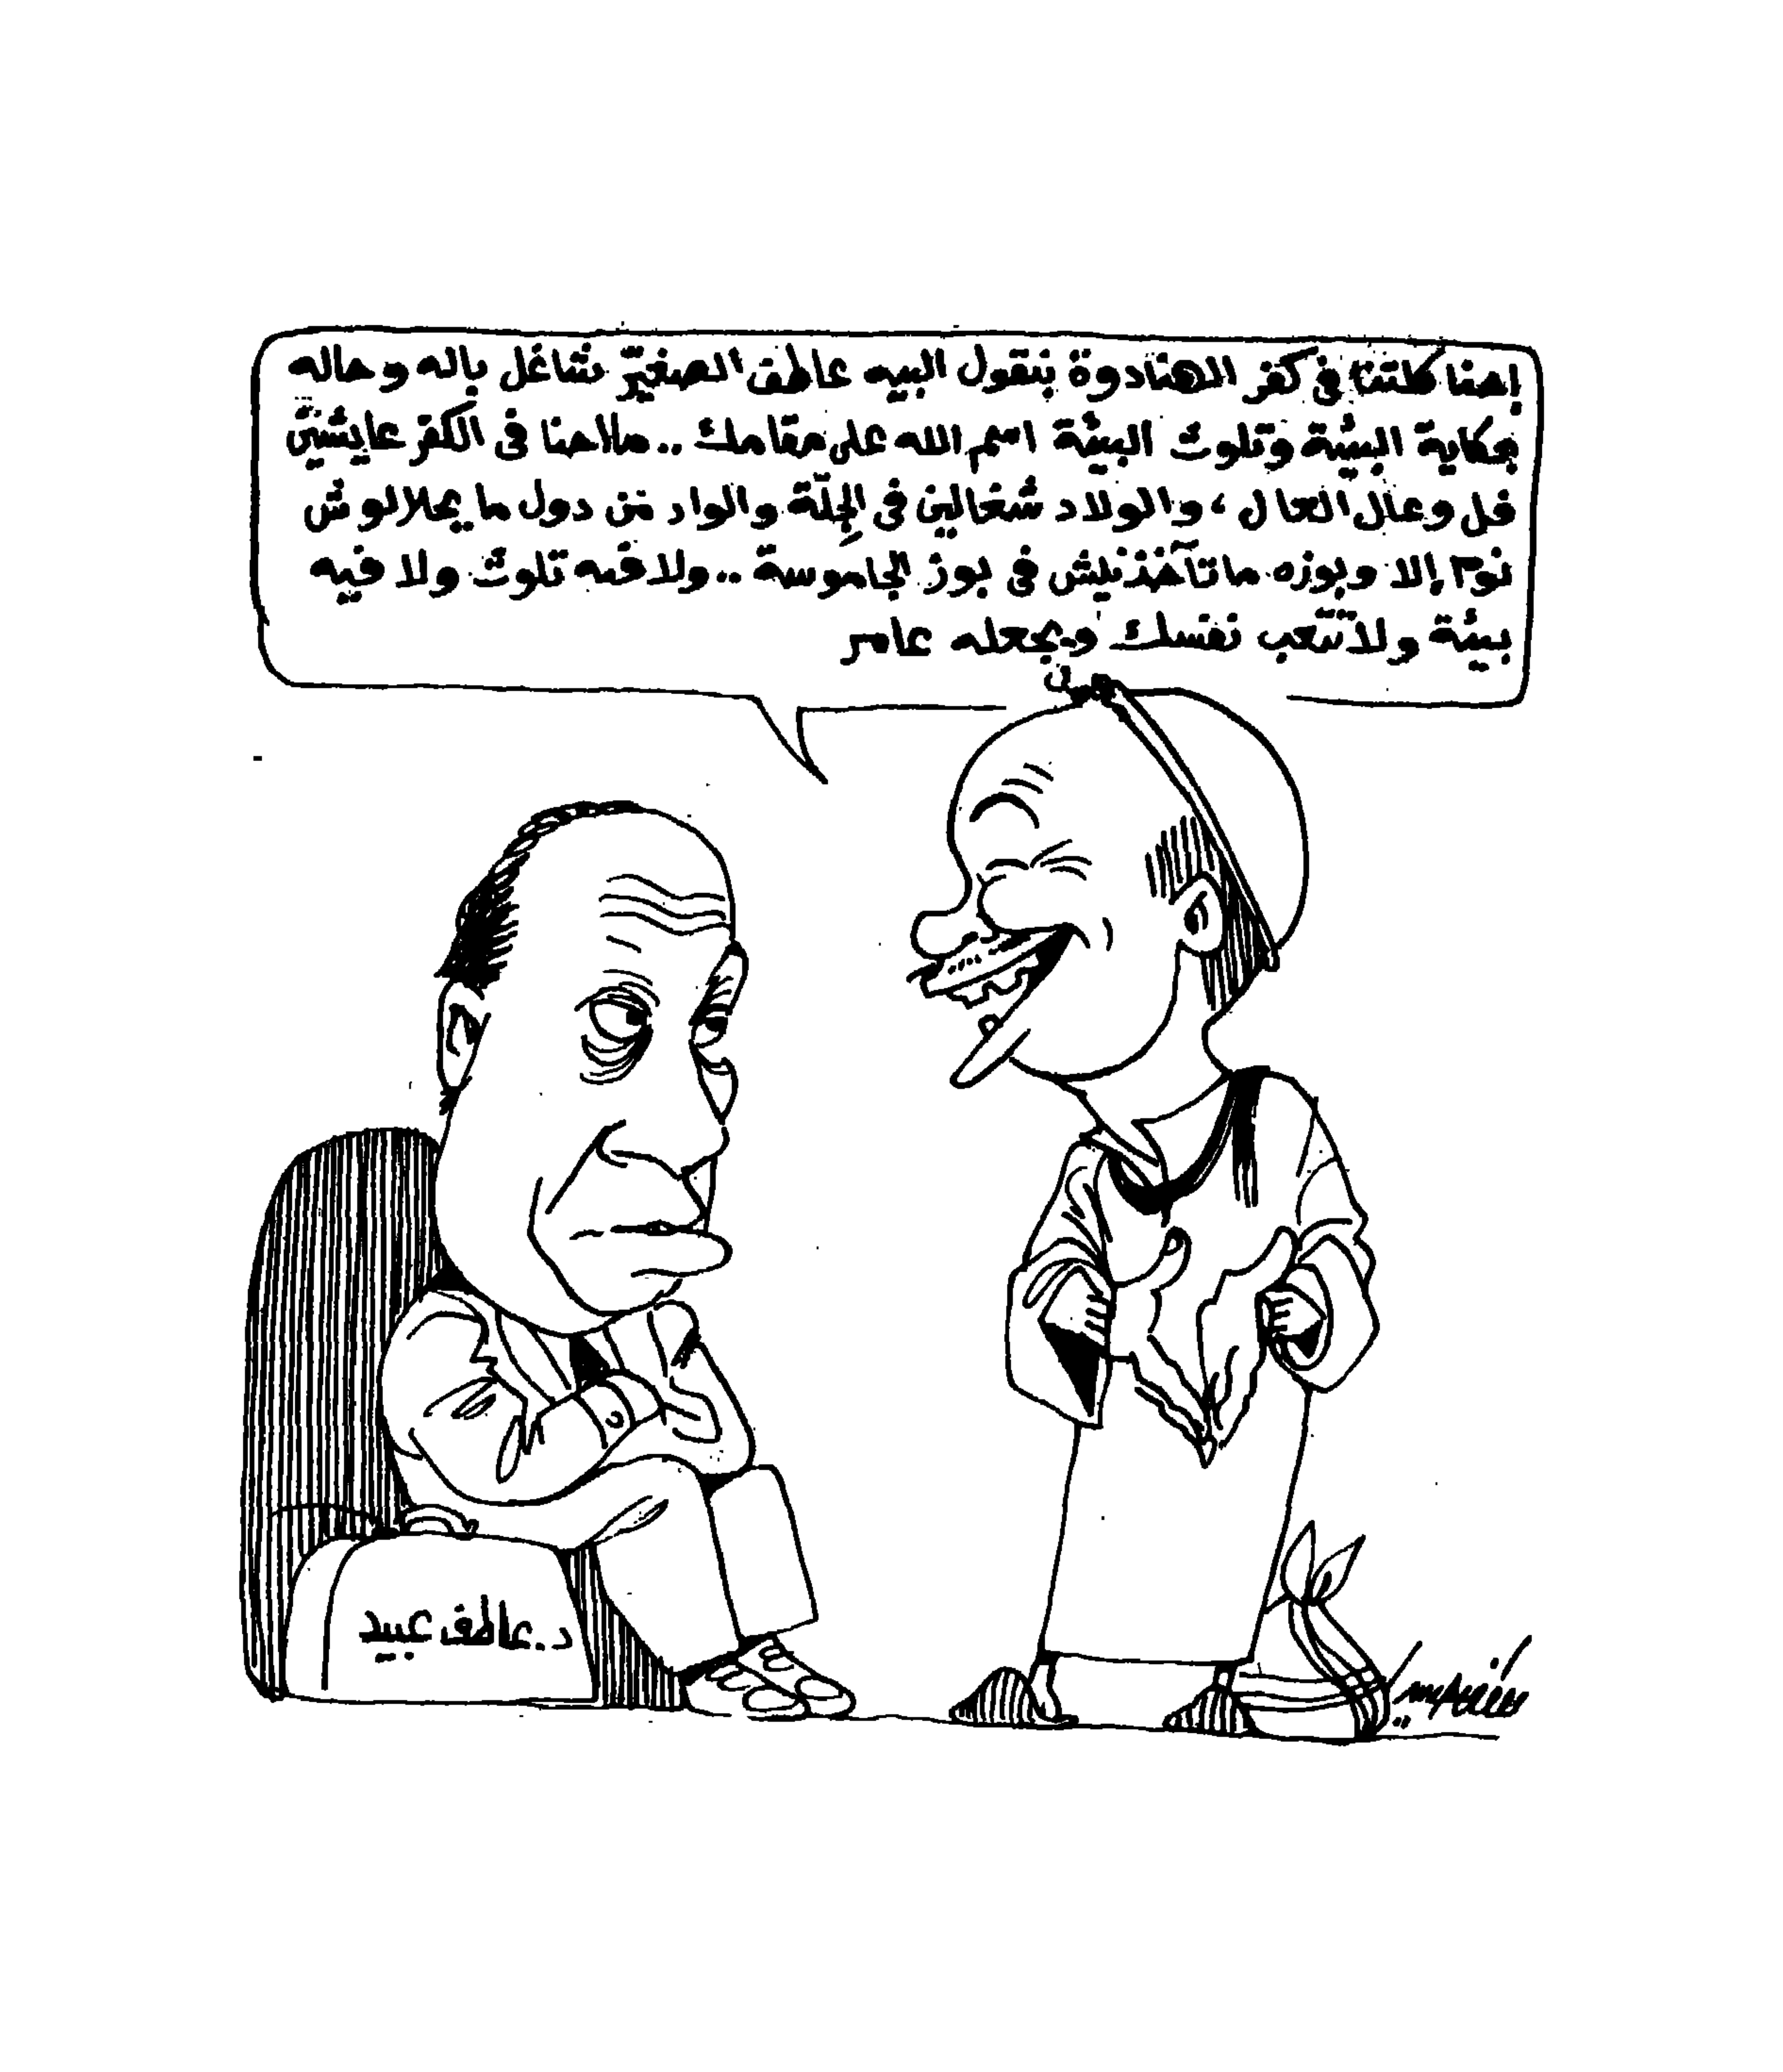 إحنا كلتنا فى كفر الهنادوة بنقول البيه عاطف الصغير شاغل باله وحاله
بحكاية البيئة وتلوث البيئة اسم الله على مقامك .. ملاحنا فى الكفر عايشين
فل وعال العال ، والولاد شغالين فى الجِلّة والواد من دول ما يحلالوش
نوم إلا وبوزه ماتآخذنيش فى بوز الجاموسة .. ولا فيه تلوث ولا فيه
بيئة ولا تتعب نفسك ويجعله عامر
د. عاطف عبيد